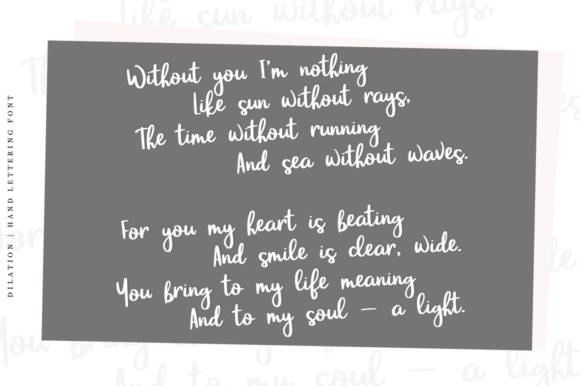 like sun without rays.
DILATION | HAND LETTERING FONT
Without you I'm nothing
Like sun without rays,
The time without running
And sea without waves.
For you my heart is beating
And smile is clear, wide.
You bring to my life meaning
And to my soul — a light.
And to my soul — a light